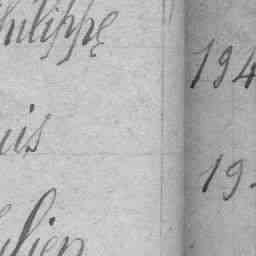 hilippe
194
uis
19
lien